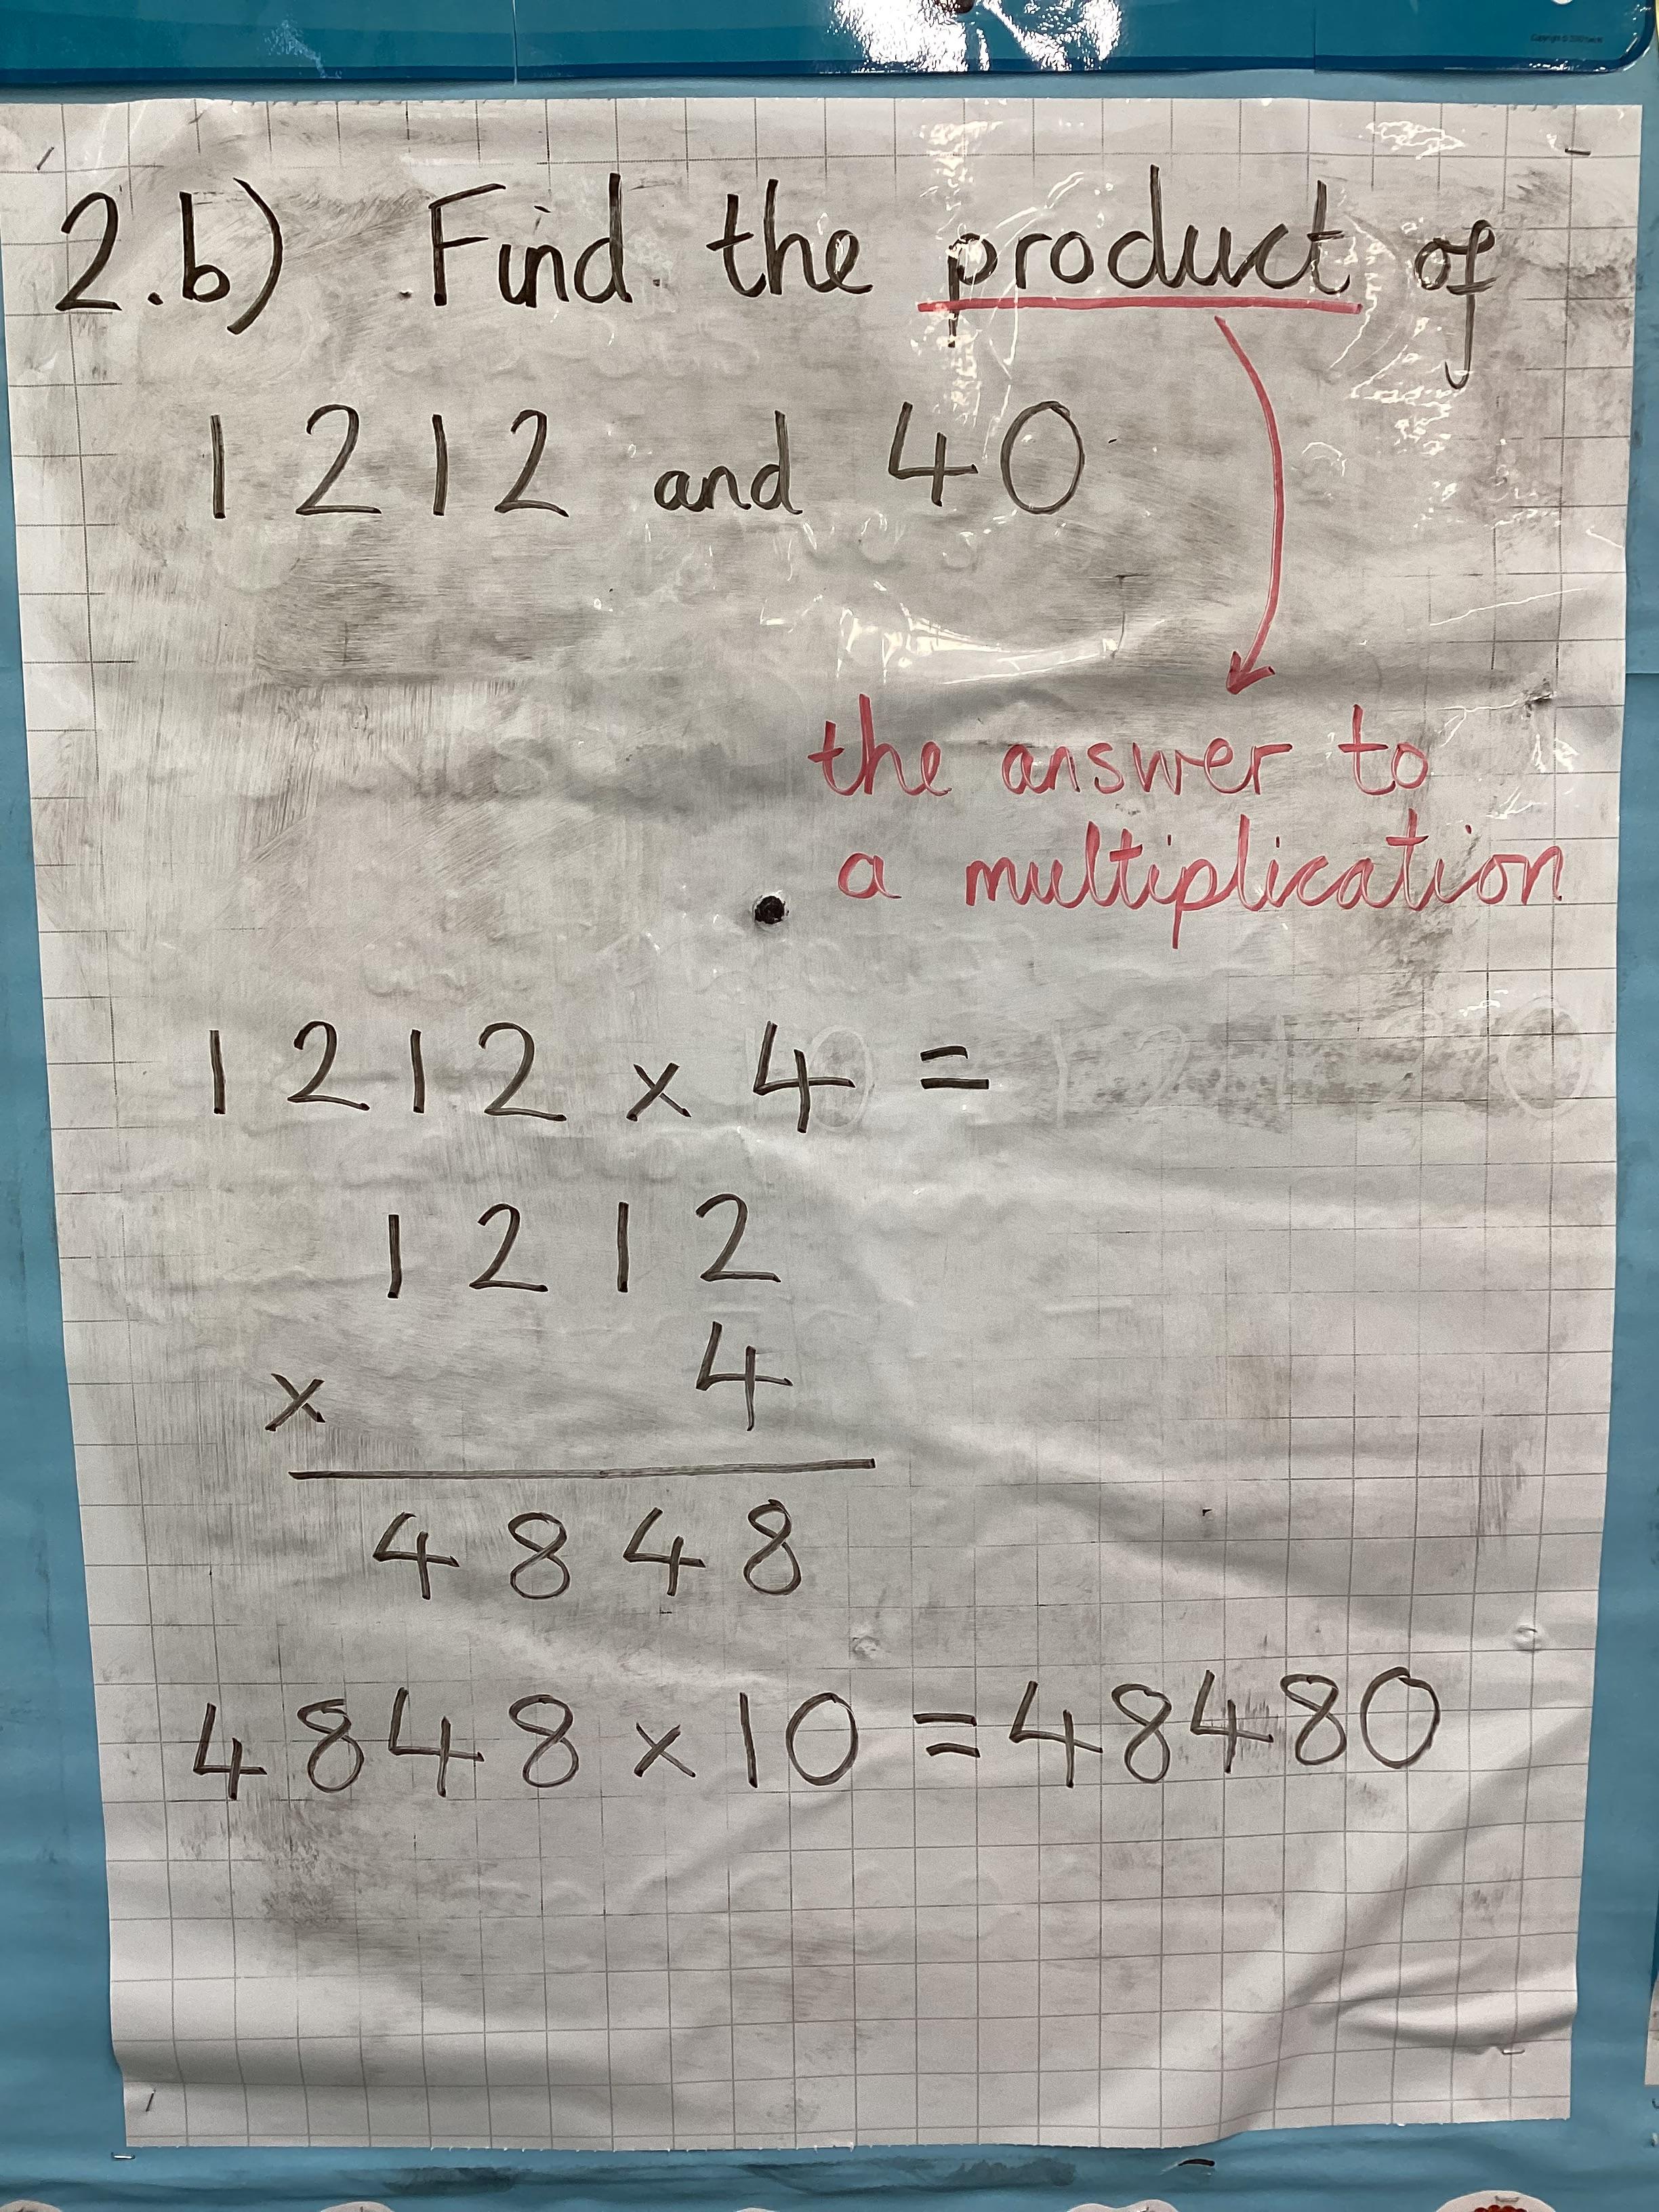 2.b) Find the product of
1212 and 40
the answer to
a multiplication
1212 × 4 =
1212
× 4
4848
4848 × 10 = 48480